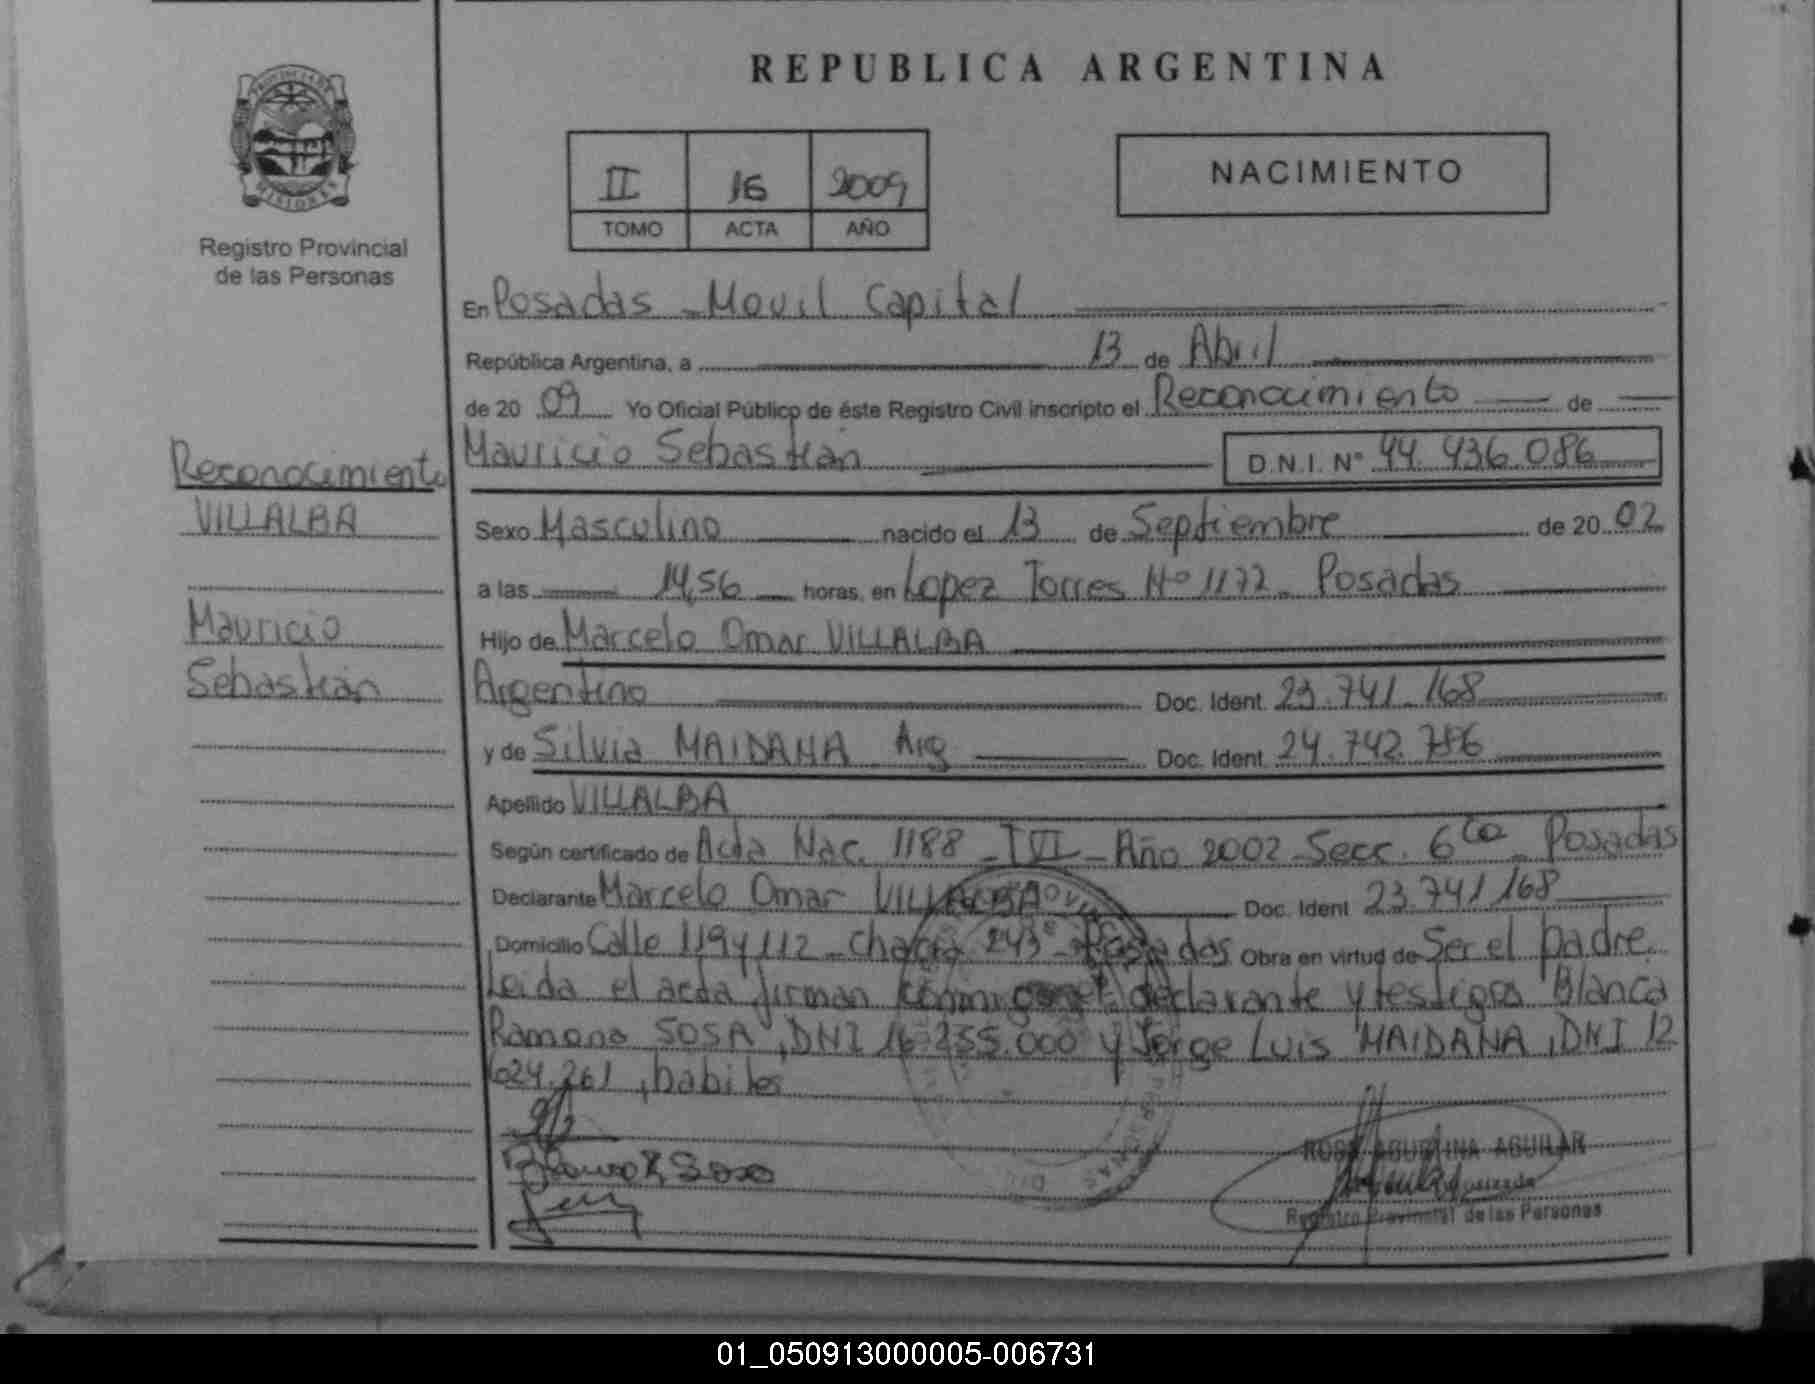 REPUBLICA ARGENTINA
PROVINCIA DE
MISIONES
Registro Provincial
de las Personas
II 16 2009
TOMO ACTA AÑO
NACIMIENTO
En Posadas - Movil Capital
República Argentina, a 13 de Abril
de 20 09 Yo Oficial Público de éste Registro Civil inscripto el Reconocimiento de
Mauricio Sebastian D.N.I. N° 44.436.086
Reconocimiento
VILLALBA
Mauricio
Sebastian
Sexo Masculino nacido el 13 de Septiembre de 20 02
a las 14,56 horas, en Lopez Torres Nº 1172 - Posadas
Hijo de Marcelo Omar VILLALBA
Argentino Doc. Ident. 23.741.168
y de Silvia MAIDANA Arg Doc. Ident. 24.742.786
Apellido VILLALBA
Según certificado de Acta Nac. 1188 - T VI - Año 2002 - Secc. 6ta - Posadas
Declarante Marcelo Omar VILLALBA Doc. Ident 23.741.168
Domicilio Calle 119 y 112 - Chacra 243 - Posadas Obra en virtud de Ser el padre
Leida el acta firman conmigo el declarante y testigos Blanca
Ramona SOSA, DNI 16.255.000 y Jorge Luis MAIDANA, DNI 12
624.261, habiles
Blanca R Sosa
AGUILAR
Registro Provincial de las Personas
01_050913000005-006731